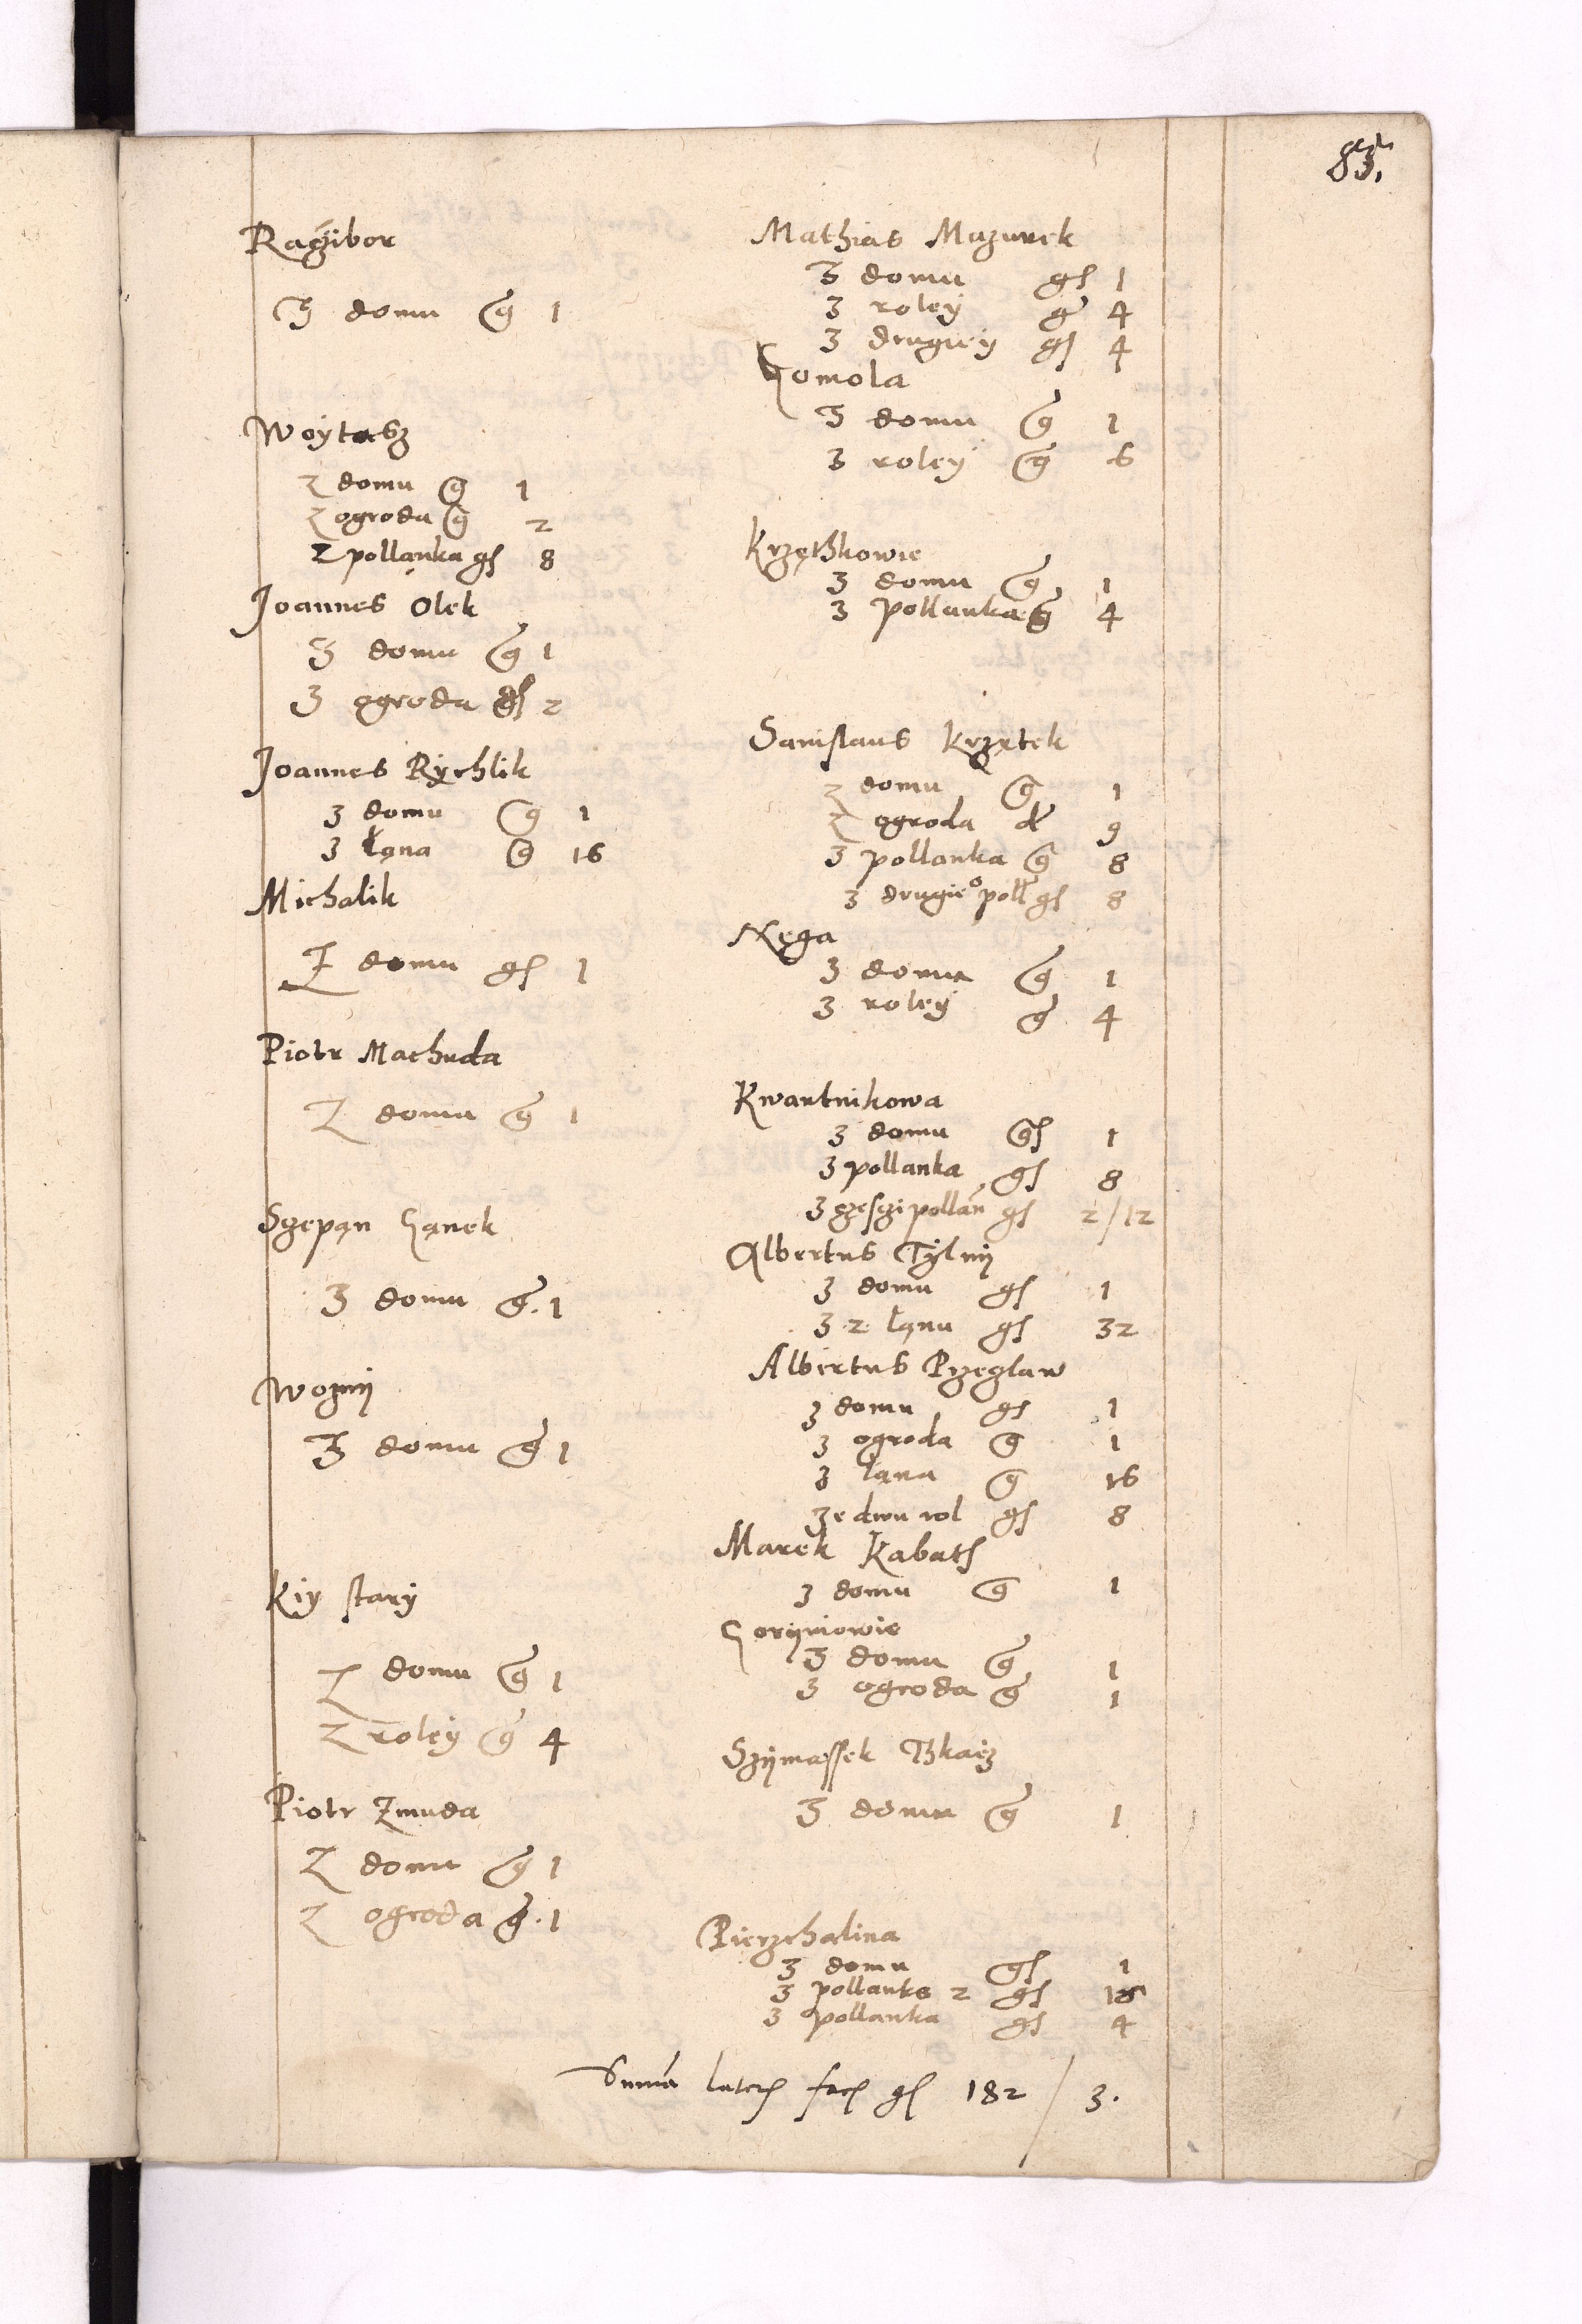 83.
Raczibor
Z domu g 1
Woÿtasz
Z domu g 1
Z ogroda g 2
Z pollanka gs 8
Joannes Olek
Z domu g 1
Z ogroda gs 2
Joannes Rychlik
Z domu g 1
Z łąna g 16
Michalik
Z domu gs 1
Piotr Machuda
Z domu g 1
Szepąn Hąnek
Z domu g. 1
Woznÿ
Z domu g 1
Kiy stary
Z domu g 1
Z roley g 4
Piotr Zmuda
Z domu g 1
Z ogroda g. 1
Mathias Mazurek
Z domu gs 1
Z roley g 4
Z drugiey gs 4
Homola
Z domu g 1
Z roley g 6
Krzątkowie
Z domu g 1
Z pollanka g 4
Sanislaus Krzętek
Z domu g 1
Z ogroda d 9
Z pollanka g 8
Z drugieo poll gs 8
Nęga
Z domu g 1
Z roley g 4
Kwartnikowa
Z domu gs 1
Z pollanka gs 8
Z czesczi pollan gs 2/12
Albertus Tylnÿ
Z domu gs 1
Z 2 łąnu gs 32
Albertus Przeglaw
Z domu gs 1
Z ogroda g 1
Z ląna g 16
Ze dwu rol gs 8
Marek Kabath
Z domu g 1
Horÿniowie
Z domu g 1
Z ogroda g 1
Szÿmassek Tkacz
Z domu g 1
Pierzchalina
Z domu gs 1
Z pollanko 2 gs 16
Z pollanka gs 4
Suma lateris facs gs 182 / 3.